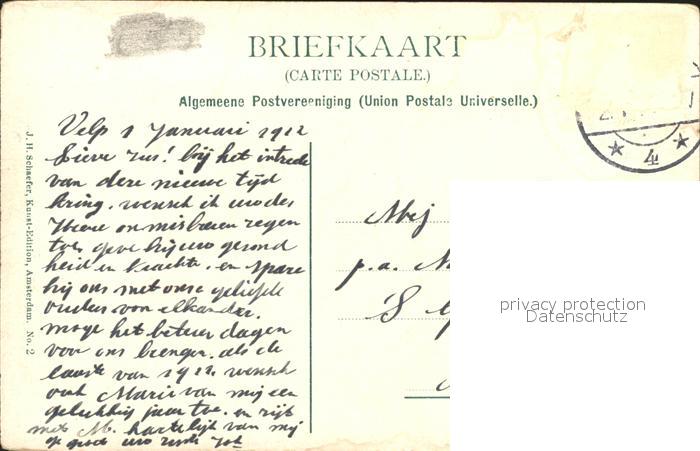 BRIEFKAART
(CARTE POSTALE.)
Algemeene Postvereeniging (Union Postale Universelle.)
Velp 1 Januari 1912
Lieve Zus! bij het intrede
van deze nieuwe tijd
kring. wensch ik u
Heere onmisbaren zegen
toe, geve hij uw gezond
heid en krachte. en spare
hij ons met onze geliefde
ouders van elkander.
moge het betere dagen
voor ons brengen. als de
laatste van 1911. wensch
ook Marie van mij een
gelukkig jaar toe. en zijt
met M. hartelijk van mij
J. H. Schaefer, Kunst-Edition, Amsterdam. No. 2
Mej
p.a. N
S
4
privacy protection
Datenschutz